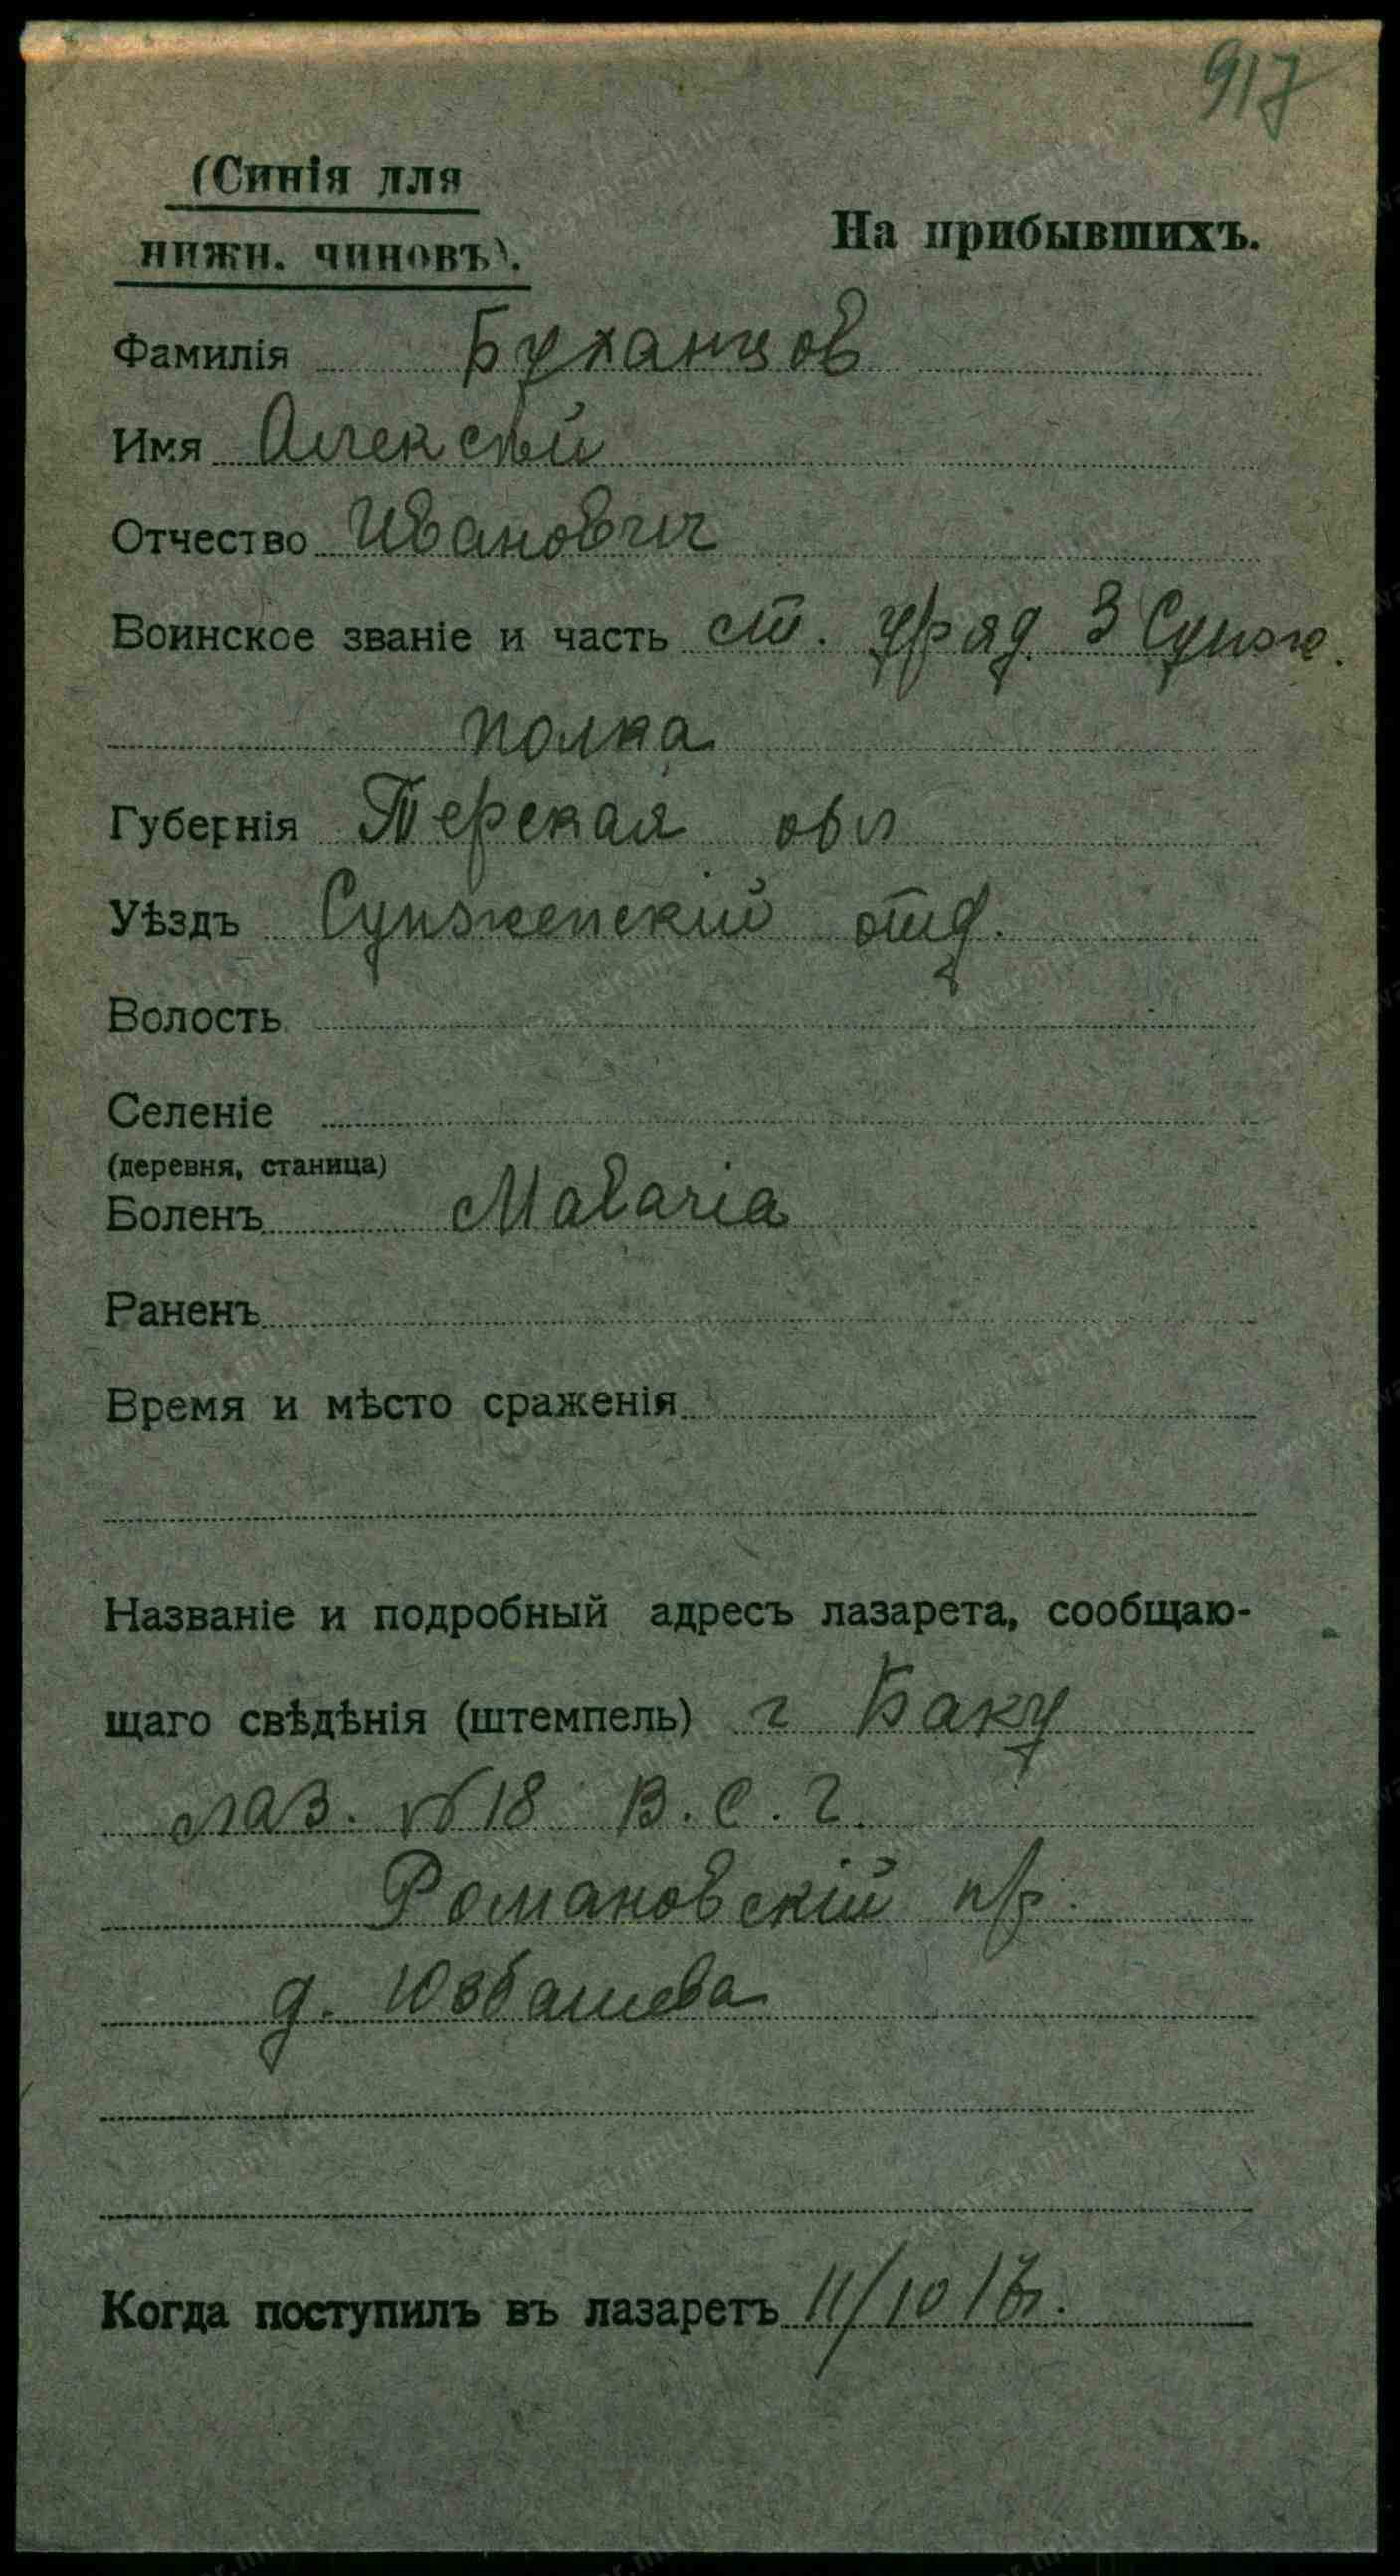 917
(Синія для
нижн. чиновъ).
На прибывшихъ.
Фамилія Буханцов
Имя Алексѣй
Отчество Иванович
Воинское званіе и часть ст. уряд. 3 Сунж.
полка
Губернія Терская обл
Уѣздъ Сунженскій отд.
Волость
Селеніе
(деревня, станица)
Боленъ Malaria
Раненъ
Время и мѣсто сраженія
Названіе и подробный адресъ лазарета, сообщаю-
щаго свѣдѣнія (штемпель) г Баку
лаз. №18 В. С. Г.
Романовскій пр.
д. Юзбашева
Когда поступилъ въ лазаретъ 11/10 17г.